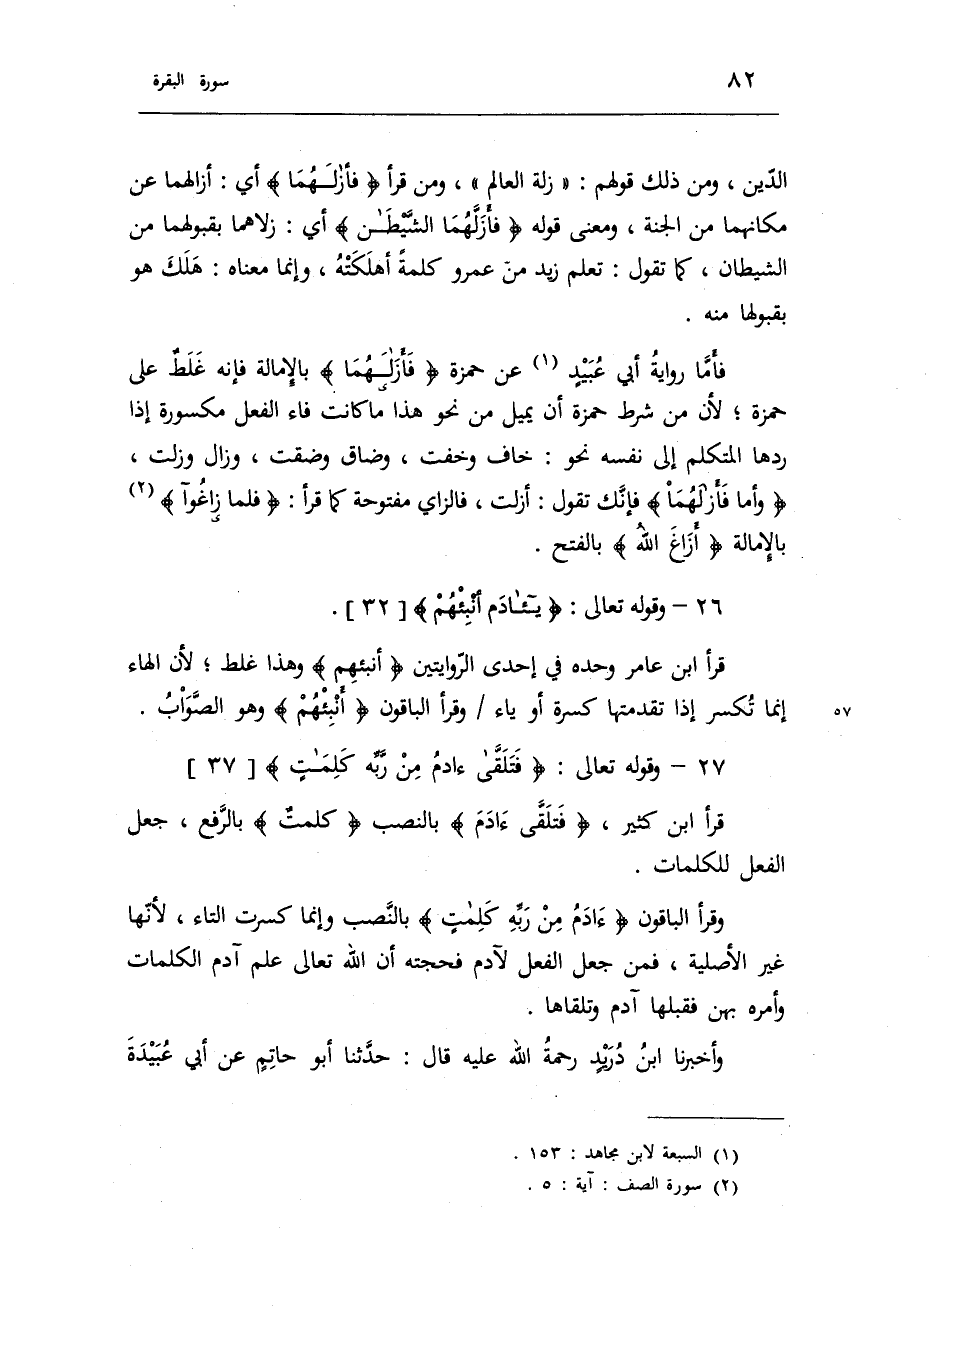 ٨٢
سورة البقرة
الدّين ، ومن ذلك قولهم : « زلة العالم » ، ومن قرأ ﴿ فأزٰلَـهُمَا ﴾ أي : أزالهما عن
مكانهما من الجنة ، ومعنى قوله ﴿ فأَزَلَّهُمَا الشَّيْطَـٰن ﴾ أي : زلاهما بقبولهما من
الشيطان ، كما تقول : تعلم زيد من عمرو كلمةً أهلَكَتْهُ ، وإنما معناه : هَلَكَ هو
بقبولها منه .
فأمَّا روايةُ أبي عُبَيْدٍ (١) عن حمزة ﴿ فَأَزٰلَـهُمَا ﴾ بالإمالة فإنه غَلَطٌ على
حمزة ؛ لأن من شرط حمزة أن يميل من نحو هذا ماكانت فاء الفعل مكسورة إذا
ردها المتكلم إلى نفسه نحو : خاف وخفت ، وضاق وضقت ، وزال وزلت ،
﴿ وأما فَأَزٰلَهُمَا ﴾ فإنَّك تقول : أزلت ، فالزاي مفتوحة كما قرأ : ﴿ فلما زاغُوآ ﴾ (٢)
بالإمالة ﴿ أَزَاغَ اللهُ ﴾ بالفتح .
٢٦ – وقوله تعالى : ﴿ يـَٰٓـٔادَم أنْبِئْهُمْ ﴾ [ ٣٢ ] .
قرأ ابن عامر وحده في إحدى الرّوايتين ﴿ أنبئهِم ﴾ وهذا غلط ؛ لأن الهاء
إنما تُكسر إذا تقدمتها كسرة أو ياء / وقرأ الباقون ﴿ أَنْبِئْهُمْ ﴾ وهو الصَّوَابُ .
٥٧
٢٧ – وقوله تعالى : ﴿ فَتَلَقَّىٰ ءادمُ مِنْ رَّبِّه كَلِمَـٰتٍ ﴾ [ ٣٧ ]
قرأ ابن كثير ، ﴿ فَتَلَقَّى ءَادَمَ ﴾ بالنصب ﴿ كلمتٌ ﴾ بالرَّفع ، جعل
الفعل للكلمات .
وقرأ الباقون ﴿ ءَادَمُ مِنْ رَبِّهِ كَلِمٰتٍ ﴾ بالنَّصب وإنما كسرت التاء ، لأنّها
غير الأصلية ، فمن جعل الفعل لآدم فحجته أن الله تعالى علم آدم الكلمات
وأمره بهن فقبلها آدم وتلقاها .
وأخبرنا ابنُ دُرَيْدٍ رحمةُ الله عليه قال : حدَّثنا أبو حاتِمٍ عن أبي عُبَيْدَةَ
(١) السبعة لابن مجاهد : ١٥٣ .
(٢) سورة الصف : آية : ٥ .